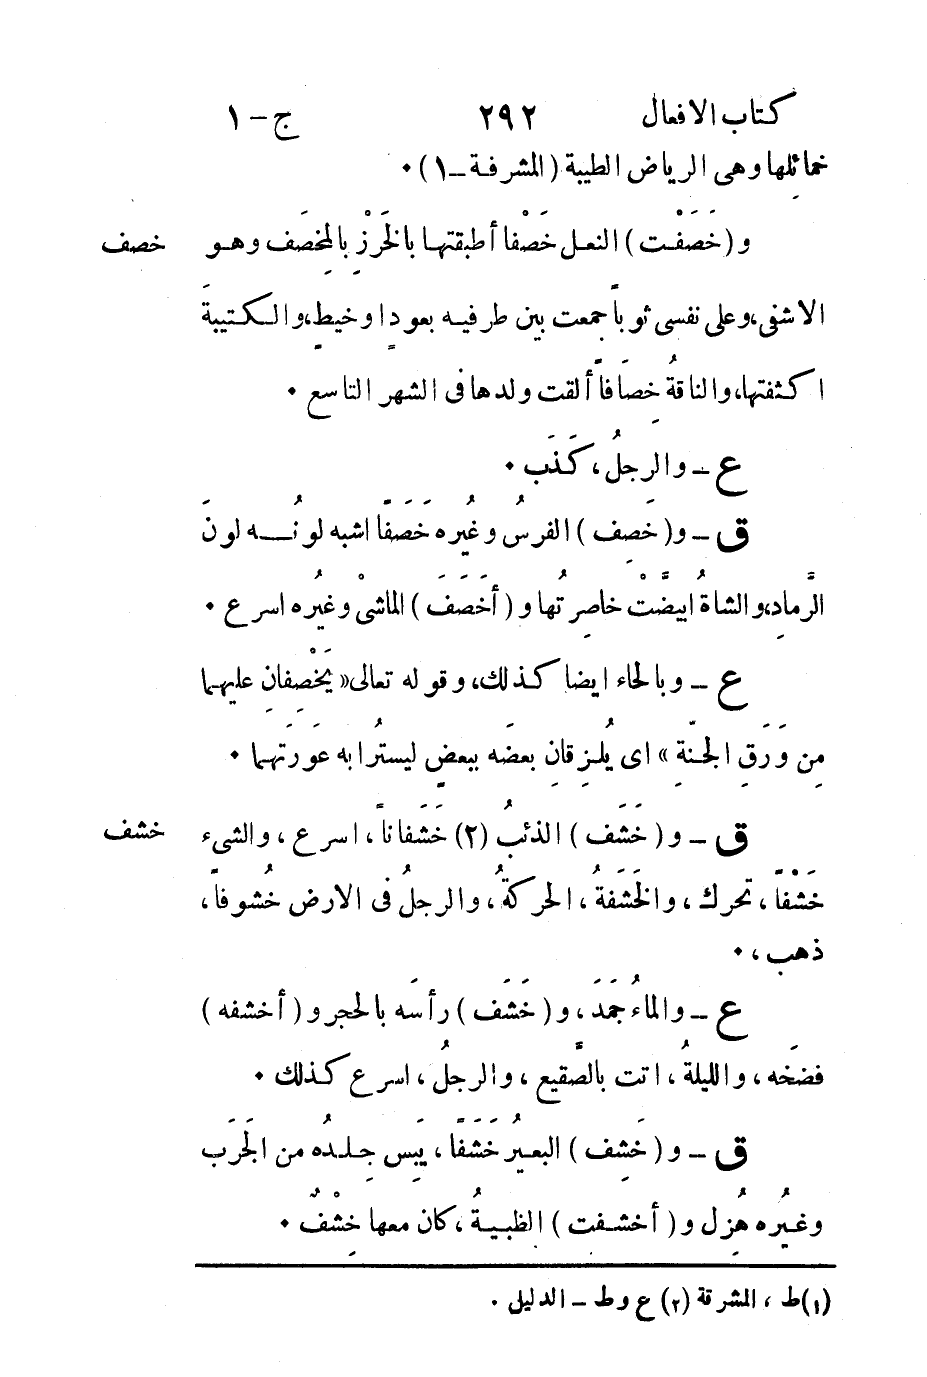 كتاب الافعال ٢٩٢ ج - ١
خمائلها وهى الرياض الطيبة (المشرفة - ١) ٠
و (خَصَفْت) النعل خَصْفا أطبقتها بالخَرْزِ بالِمخصَف وهو خصف
الاشفى، وعلى نفسى ثوباً جمعت بين طرفيه بعودٍ او خيطٍ، والكتيبةَ
اكثفتها، والناقةُ خِصَافاً ألقت ولدها فى الشهر التاسع ٠
ع - والرجلُ، كَذَب ٠
ق - و (خَصِف) الفرسُ وغيُره خَصَفًا اشبه لونُه لونَ
الرَّمادِ، والشاةُ ابيضَّتْ خاصِرتُها و (أخَصَفَ) الماشىْ وغيُره اسرع ٠
ع - وبالحاء ايضا كذلك، وقوله تعالى « يَخْصِفانِ عليهما
مِن وَرَقِ الجنّةِ » اى يُلزِقانِ بعضَه ببعضٍ ليستُرا به عَورَتَهما ٠
ق - و (خَشَف) الذئبُ (٢) خَشَفاناً، اسرع، والشىء خشف
خَشْفاً، تحرك، والخَشَفةُ، الحركةُ، والرجلُ فى الارض خُشوفاً،
ذهب، ٠
ع - والماءُ جَمَدَ، و (خَشَف) رأسَه بالحجر و (أخشفه)
فضَخه، والليلةُ، اتت بالصَّقيع، والرجلُ، اسرع كذلك ٠
ق - و (خَشِف) البعيرُ خَشَفًا، يَبِس جِلدُه من الجَرَب
وغيُره هُزِل و (أخشفت) الظبيةُ، كان معها خِشْفٌ ٠
(١) ط، المشرقة (٢) ع وط - الدليل ٠